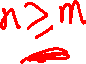 n ≥ m